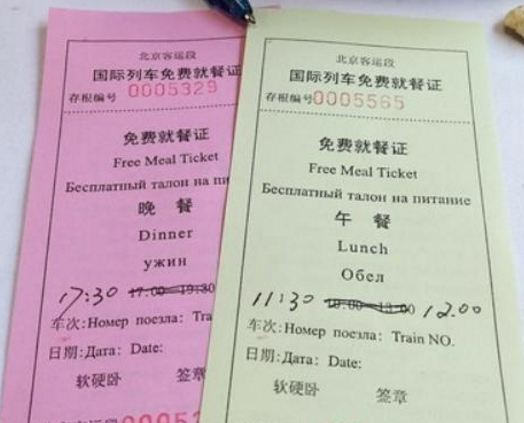 北京客运段
国际列车免费就餐证
存根编号 0005329
免费就餐证
Free Meal Ticket
Бесплатный талон на пи
晚 餐
Dinner
ужин
17:30 17:00-19:30
车次:Номер поезла: Tra
日期:Дата: Date:
软硬卧 签章
北京客运段
国际列车免费就餐证
存根编号0005565
免费就餐证
Free Meal Ticket
Бесплатный талон на питание
午 餐
Lunch
Обел
11:30 12.00
车次:Номер поезла: Train NO.
日期:Дата: Date:
软硬卧 签章